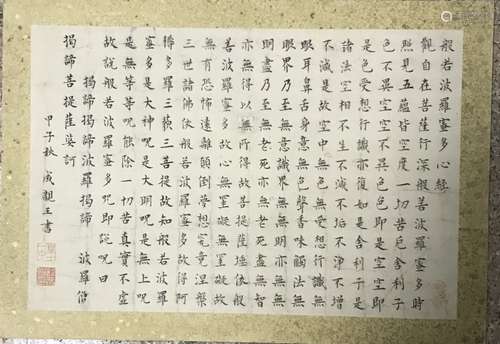 般若波羅蜜多心經
觀自在菩薩行深般若波羅蜜多時
照見五蘊皆空度一切苦厄舍利子
色不異空空不異色色即是空空即
是色受想行識亦復如是舍利子是
諸法空相不生不滅不垢不淨不增
不減是故空中無色無受想行識無
眼耳鼻舌身意無色聲香味觸法無
眼界乃至無意識界無無明亦無無
明盡乃至無老死亦無老死盡無智
亦無得以無所得故菩提薩埵依般
若波羅蜜多故心無罣礙無罣礙故
無有恐怖遠離顛倒夢想究竟涅槃
三世諸佛依般若波羅蜜多故得阿
耨多羅三藐三菩提故知般若波羅
蜜多是大神咒是大明咒是無上咒
是無等等咒能除一切苦真實不虛
故說般若波羅蜜多咒即說咒曰
揭諦揭諦波羅揭諦 波羅僧
揭諦菩提薩婆訶
甲子秋 成親王書